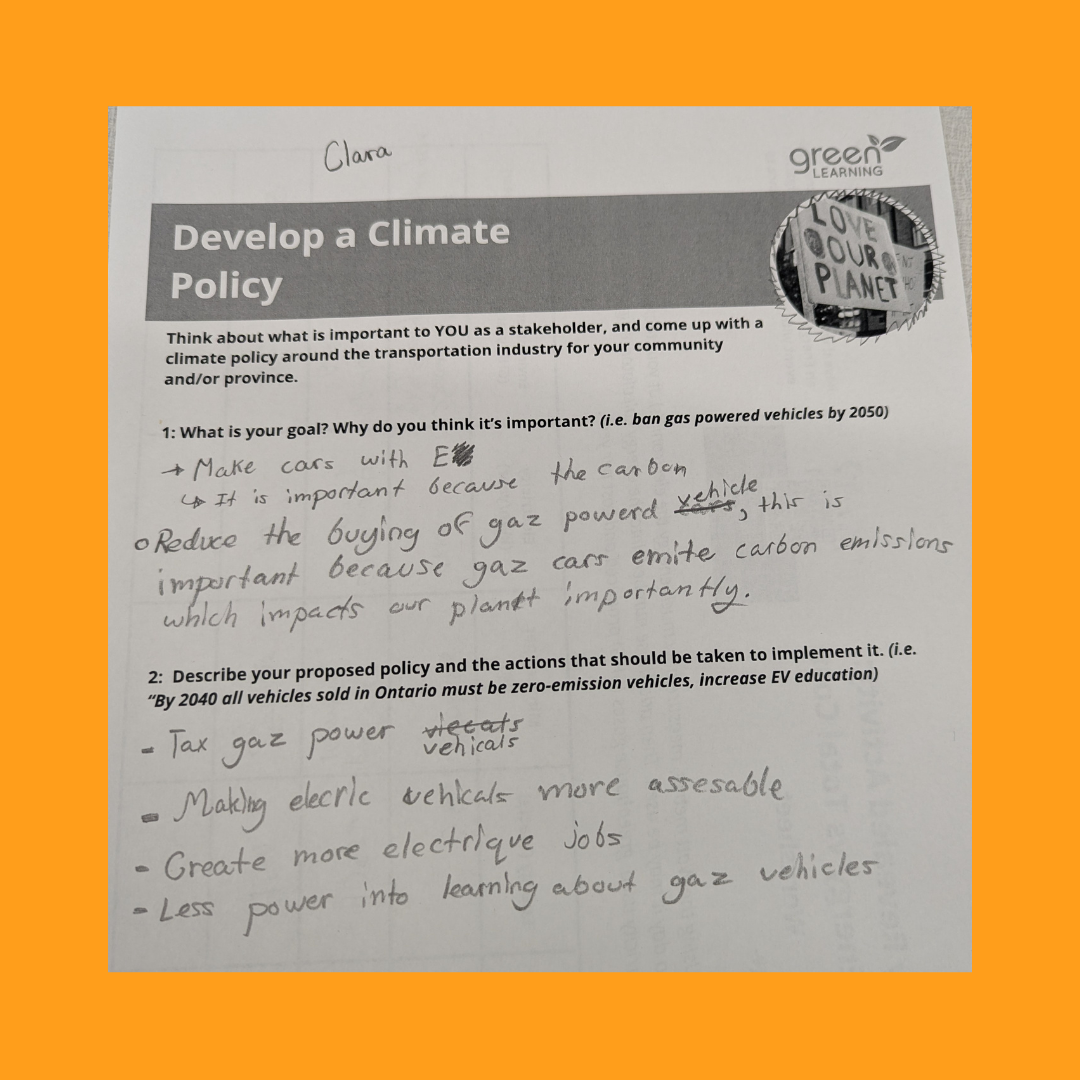 Clara
green
LEARNING
Develop a Climate
Policy
LOVE
OUR
PLANET
Think about what is important to YOU as a stakeholder, and come up with a
climate policy around the transportation industry for your community
and/or province.
1: What is your goal? Why do you think it's important? (i.e. ban gas powered vehicles by 2050)
→ Make cars with E
↳ It is important because the carbon
o Reduce the buying of gaz powerd cars vehicle, this is
important because gaz cars emite carbon emissions
which impacts our planet importantly.
2: Describe your proposed policy and the actions that should be taken to implement it. (i.e.
“By 2040 all vehicles sold in Ontario must be zero-emission vehicles, increase EV education)
- Tax gaz power
vehicals
- Making elecric vehicals more assesable
- Create more electrique jobs
- Less power into learning about gaz vehicles